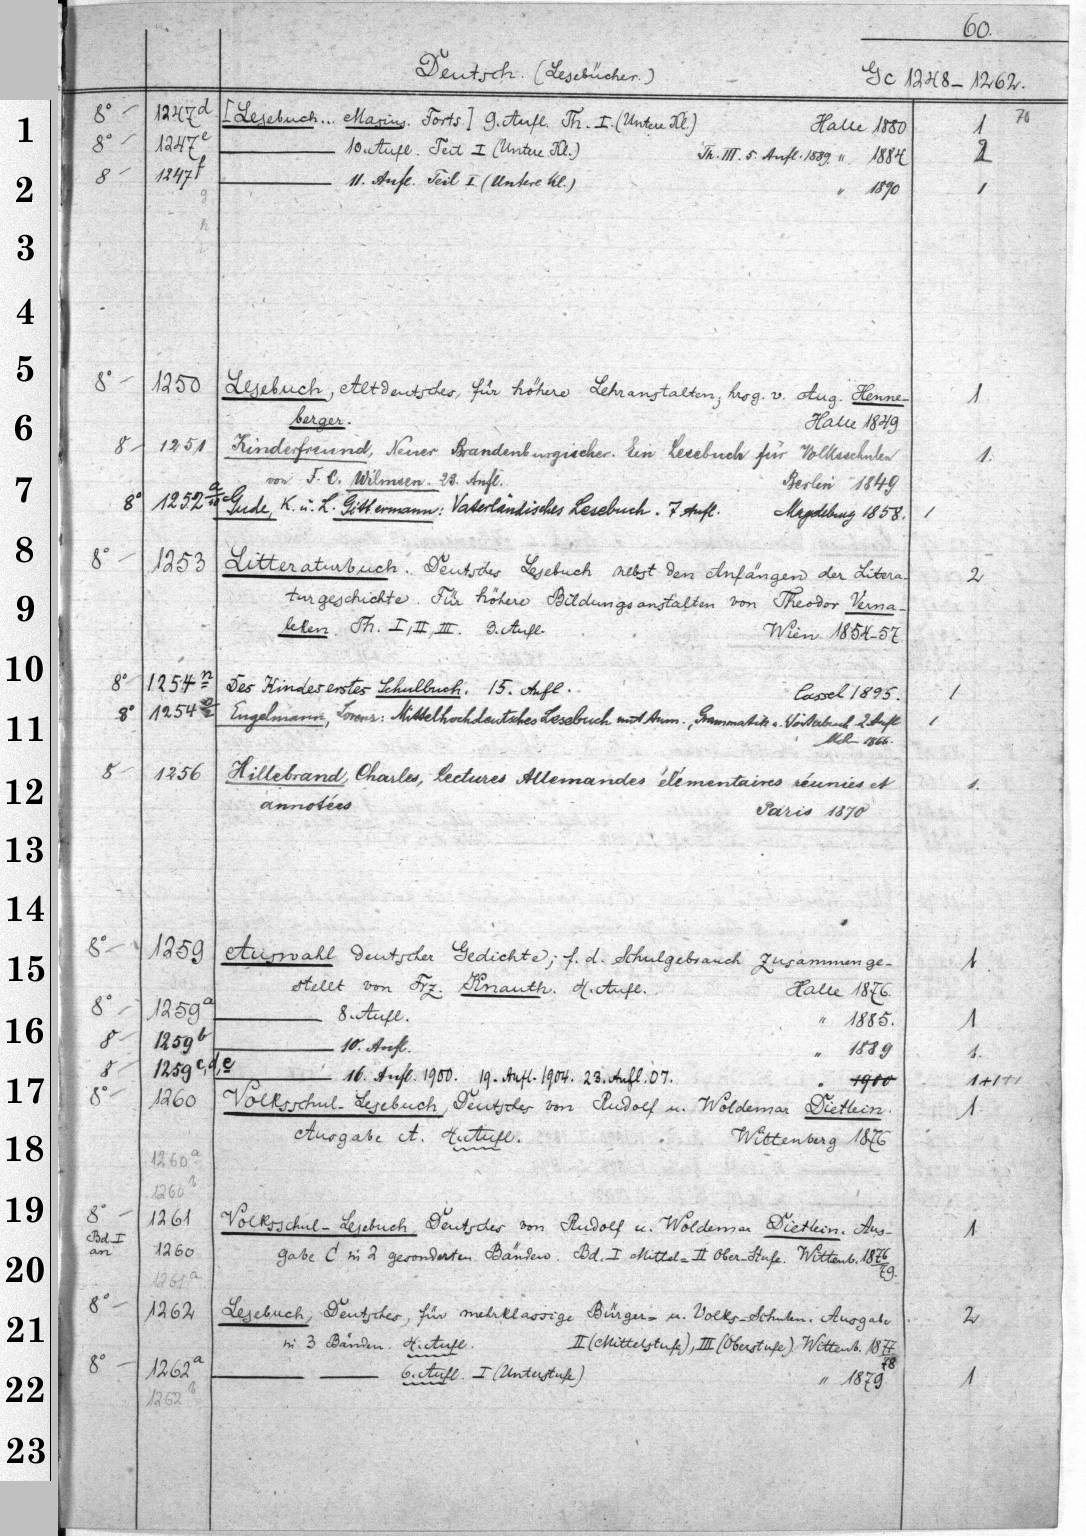 60.
Deutsch. (Lesebücher.) Gc 1248–1262.
70
8° – 1247d [Lesebuch... Masius. Forts.] 9. Aufl. Th. I. (Untere Kl.) Halle 1880 1
8° – 1247e ——— 10. Aufl. Teil I (Untere Kl.) Th. III. 5. Aufl. 1889. " 1884 2
8 – 1247f ——— 11. Aufl. Teil I (Untere Kl.) " 1890 1
g
h
i
8° – 1250 Lesebuch, Altdeutsches, für höhere Lehranstalten; hrsg. v. Aug. Henne- 1
berger. Halle 1849
8 – 1251 Kinderfreund, Neuer Brandenburgischer. Ein Lesebuch für Volksschulen 1.
von F. C. Wilmsen. 23. Aufl. Berlin 1849
8° 1252a Gude, K. u. L. Gittermann: Vaterländisches Lesebuch. 7 Aufl. Magdeburg 1858. 1
8° – 1253 Litteraturbuch. Deutsches Lesebuch nebst den Anfängen der Litera- 2
turgeschichte. Für höhere Bildungsanstalten von Theodor Verna-
leken. Th. I, II, III. 3. Aufl. Wien 1854–57
8° – 1254n Des Kindes erstes Schulbuch. 15. Aufl. Cassel 1895. 1
8° – 1254 Engelmann, Lorenz: Mittelhochdeutsches Lesebuch mit Anm., Grammatik u. Wörterbuch 2 Aufl 1
Mch. 1866.
8 – 1256 Hillebrand, Charles, lectures Allemandes élémentaires réunies et 1.
annotées Paris 1870
8° – 1259 Auswahl deutscher Gedichte; f. d. Schulgebrauch zusammenge- 1.
stellt von Frz. Knauth. 4. Aufl. Halle 1876.
8° – 1259a ——— 8. Aufl. " 1885. 1
8 – 1259b ——— 10. Aufl. " 1889 1.
8 – 1259c,d,e ——— 16. Aufl. 1900. 19. Aufl. 1904. 23. Aufl. 07. " 1900 1+1+1
8° – 1260 Volksschul-Lesebuch, Deutsches von Rudolf u. Woldemar Dietlein. 1
Ausgabe A. 4. Aufl. Wittenberg 1876
1260a
1260b
8° – 1261 Volksschul-Lesebuch, Deutsches von Rudolf u. Woldemar Dietlein. Aus- 1
Bd. I an 1260 gabe C in 2 gesonderten Bänden. Bd. I Mittel= II Ober-Stufe. Wittenb. 1876/79.
1261a
8° – 1262 Lesebuch, Deutsches, für mehrklassige Bürger= u. Volks-Schulen. Ausgabe 2
in 3 Bänden. 4. Aufl. II (Mittelstufe), III (Oberstufe) Wittenb. 1877/78
8° – 1262a ——— ——— 6. Aufl. I (Unterstufe) " 1879 1
1262b
1
2
3
4
5
6
7
8
9
10
11
12
13
14
15
16
17
18
19
20
21
22
23